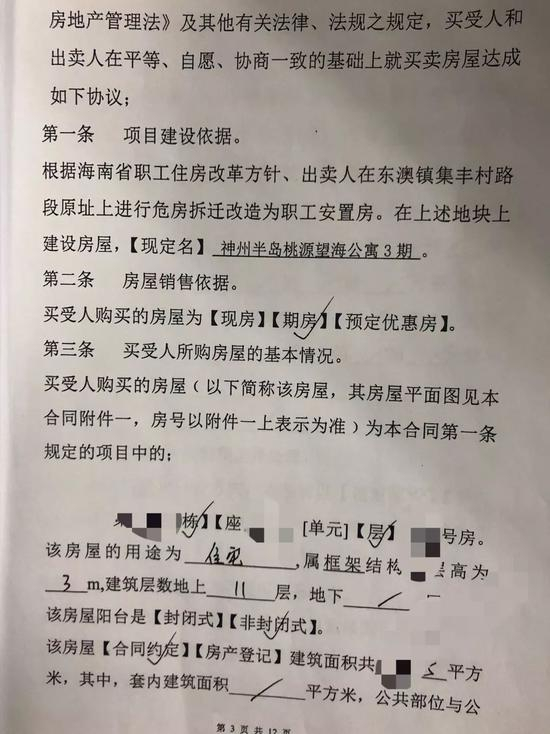 房地产管理法》及其他有关法律、法规之规定，买受人和
出卖人在平等、自愿、协商一致的基础上就买卖房屋达成
如下协议；
第一条 项目建设依据。
根据海南省职工住房改革方针、出卖人在东澳镇集丰村路
段原址上进行危房拆迁改造为职工安置房。在上述地块上
建设房屋，【现定名】 神州半岛桃源望海公寓3期 。
第二条 房屋销售依据。
买受人购买的房屋为【现房】【期房】【预定优惠房】。
第三条 买受人所购房屋的基本情况。
买受人购买的房屋（以下简称该房屋，其房屋平面图见本
合同附件一，房号以附件一上表示为准）为本合同第一条
规定的项目中的；
栋】【座 [单元]【层】 号房。
该房屋的用途为 住宅 ,属框架结构 层高为
3 m,建筑层数地上 11 层，地下 /
该房屋阳台是【封闭式】【非封闭式】。
该房屋【合同约定】【房产登记】建筑面积共 平方
米，其中，套内建筑面积 / 平方米，公共部位与公
第 3 页 共 12 页